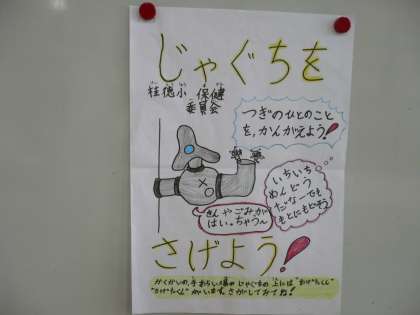 じゃぐちを
桂徳小 保健
委員会
つぎのひとのこと
を、かんがえよう!
いちいち
めんどう
だなーでも
もとにもどそう
きんやごみが
はいっちゃう〜
さげよう!
かくかいの、手あらい場の じゃぐちの 上には "あげたくん"
"さげたくん" がいます。さがしてみてね!